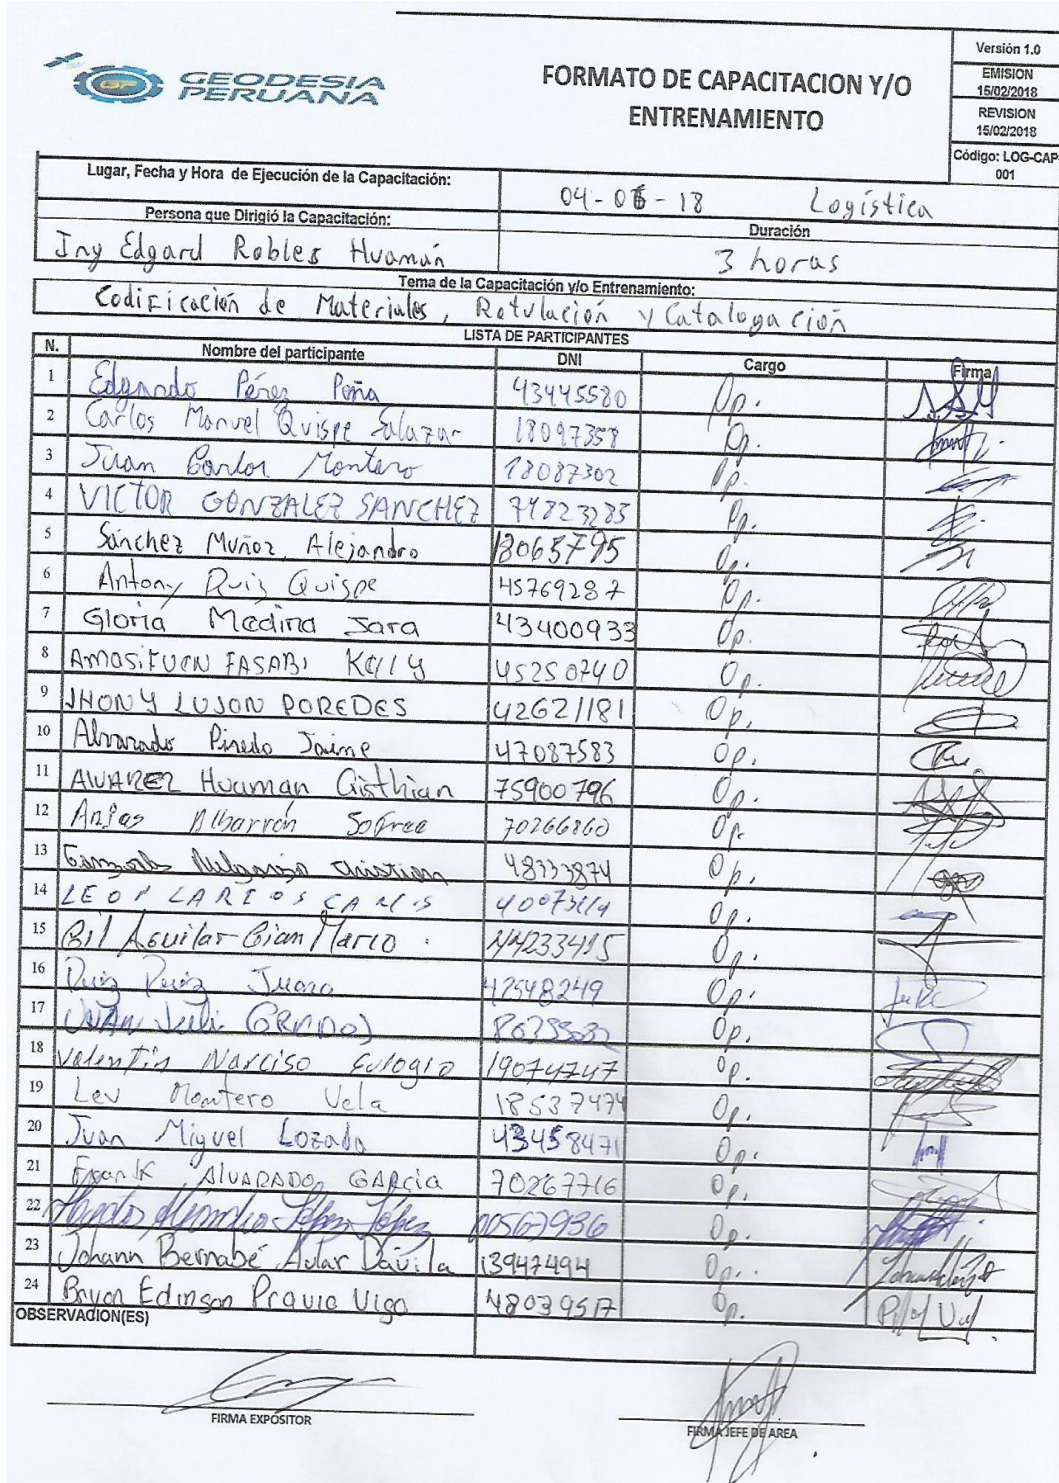 GEODESIA
PERUANA
FORMATO DE CAPACITACION Y/O
ENTRENAMIENTO
Versión 1.0
EMISION
15/02/2018
REVISION
15/02/2018
Código: LOG-CAP
001
Lugar, Fecha y Hora de Ejecución de la Capacitación:
04-06-18 Logística
Persona que Dirigió la Capacitación: Duración
Ing Edgard Robles Huamán 3 horas
Tema de la Capacitación y/o Entrenamiento:
Codificación de Materiales, Rotulación y Catalogación
LISTA DE PARTICIPANTES
N. Nombre del participante DNI Cargo Firma
1 Edgardo Pérez Peña 43445580 Op.
2 Carlos Manuel Quispe Salazar 18097358 Op.
3 Juan Carlos Montero 18087302 Op.
4 VICTOR GONZALEZ SANCHEZ 74823283 Op.
5 Sánchez Muñoz, Alejandro 18065795 Op.
6 Antony Ruiz Quispe 45769287 Op.
7 Gloria Medina Jara 43400933 Op.
8 AMASIFUEN FASABI Kelly 45250740 Op.
9 JHONY LUJON POREDES 42621181 Op.
10 Alvarado Pinedo Jaime 47087583 Op.
11 ALVAREZ Huaman Cristhian 75900796 Op.
12 Albarrón 70266860 Op.
13 Christian 48333874 Op.
14 LEON LARIOS Op.
15 Gil Aguilar Gian Marco. 44233415 Op.
16 Ruiz Ruiz Juana 42548249 Op.
17 JUAN Op.
18 Valentin Narciso Eulogio 19074747 Op.
19 Lev Montero Vela 18537474 Op.
20 Juan Miguel Lozada 43458471 Op.
21 Frank ALVARADO GARCIA 70267716 Op.
22 López López 00567936 Op.
23 Johann Bernabé Dávila 13947494 Op.
24 Bryan Edinson Pravia Vigo 48039517 Op.
OBSERVACION(ES)
FIRMA EXPOSITOR
FIRMA JEFE DE AREA